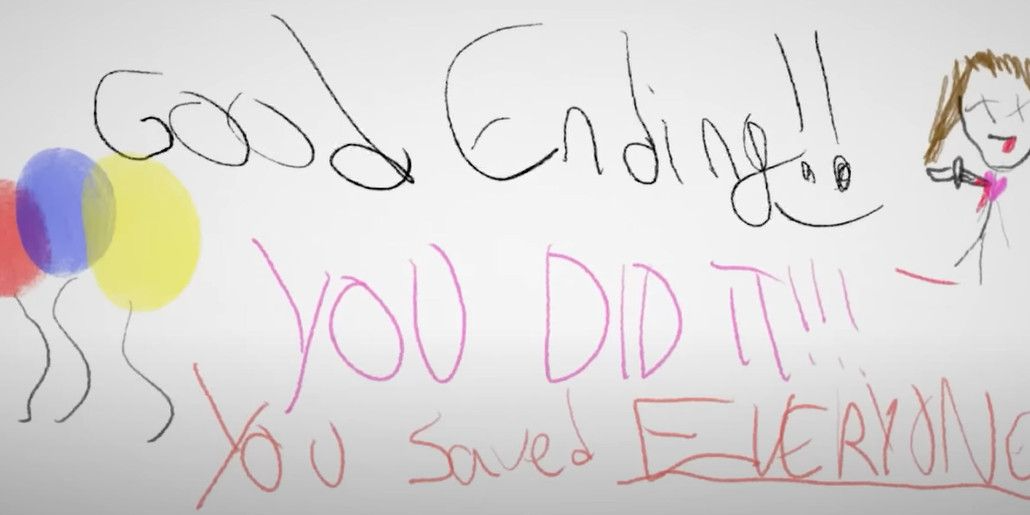 Good Ending!!
YOU DID IT!!!
YOU Saved EVERYONE